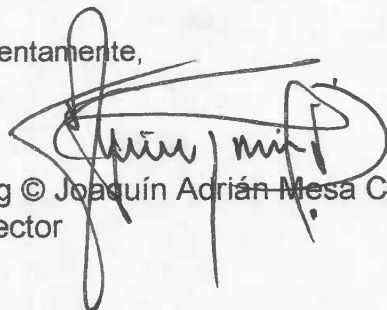 entamente,
g © Joaquín Adrián Mesa C
ector